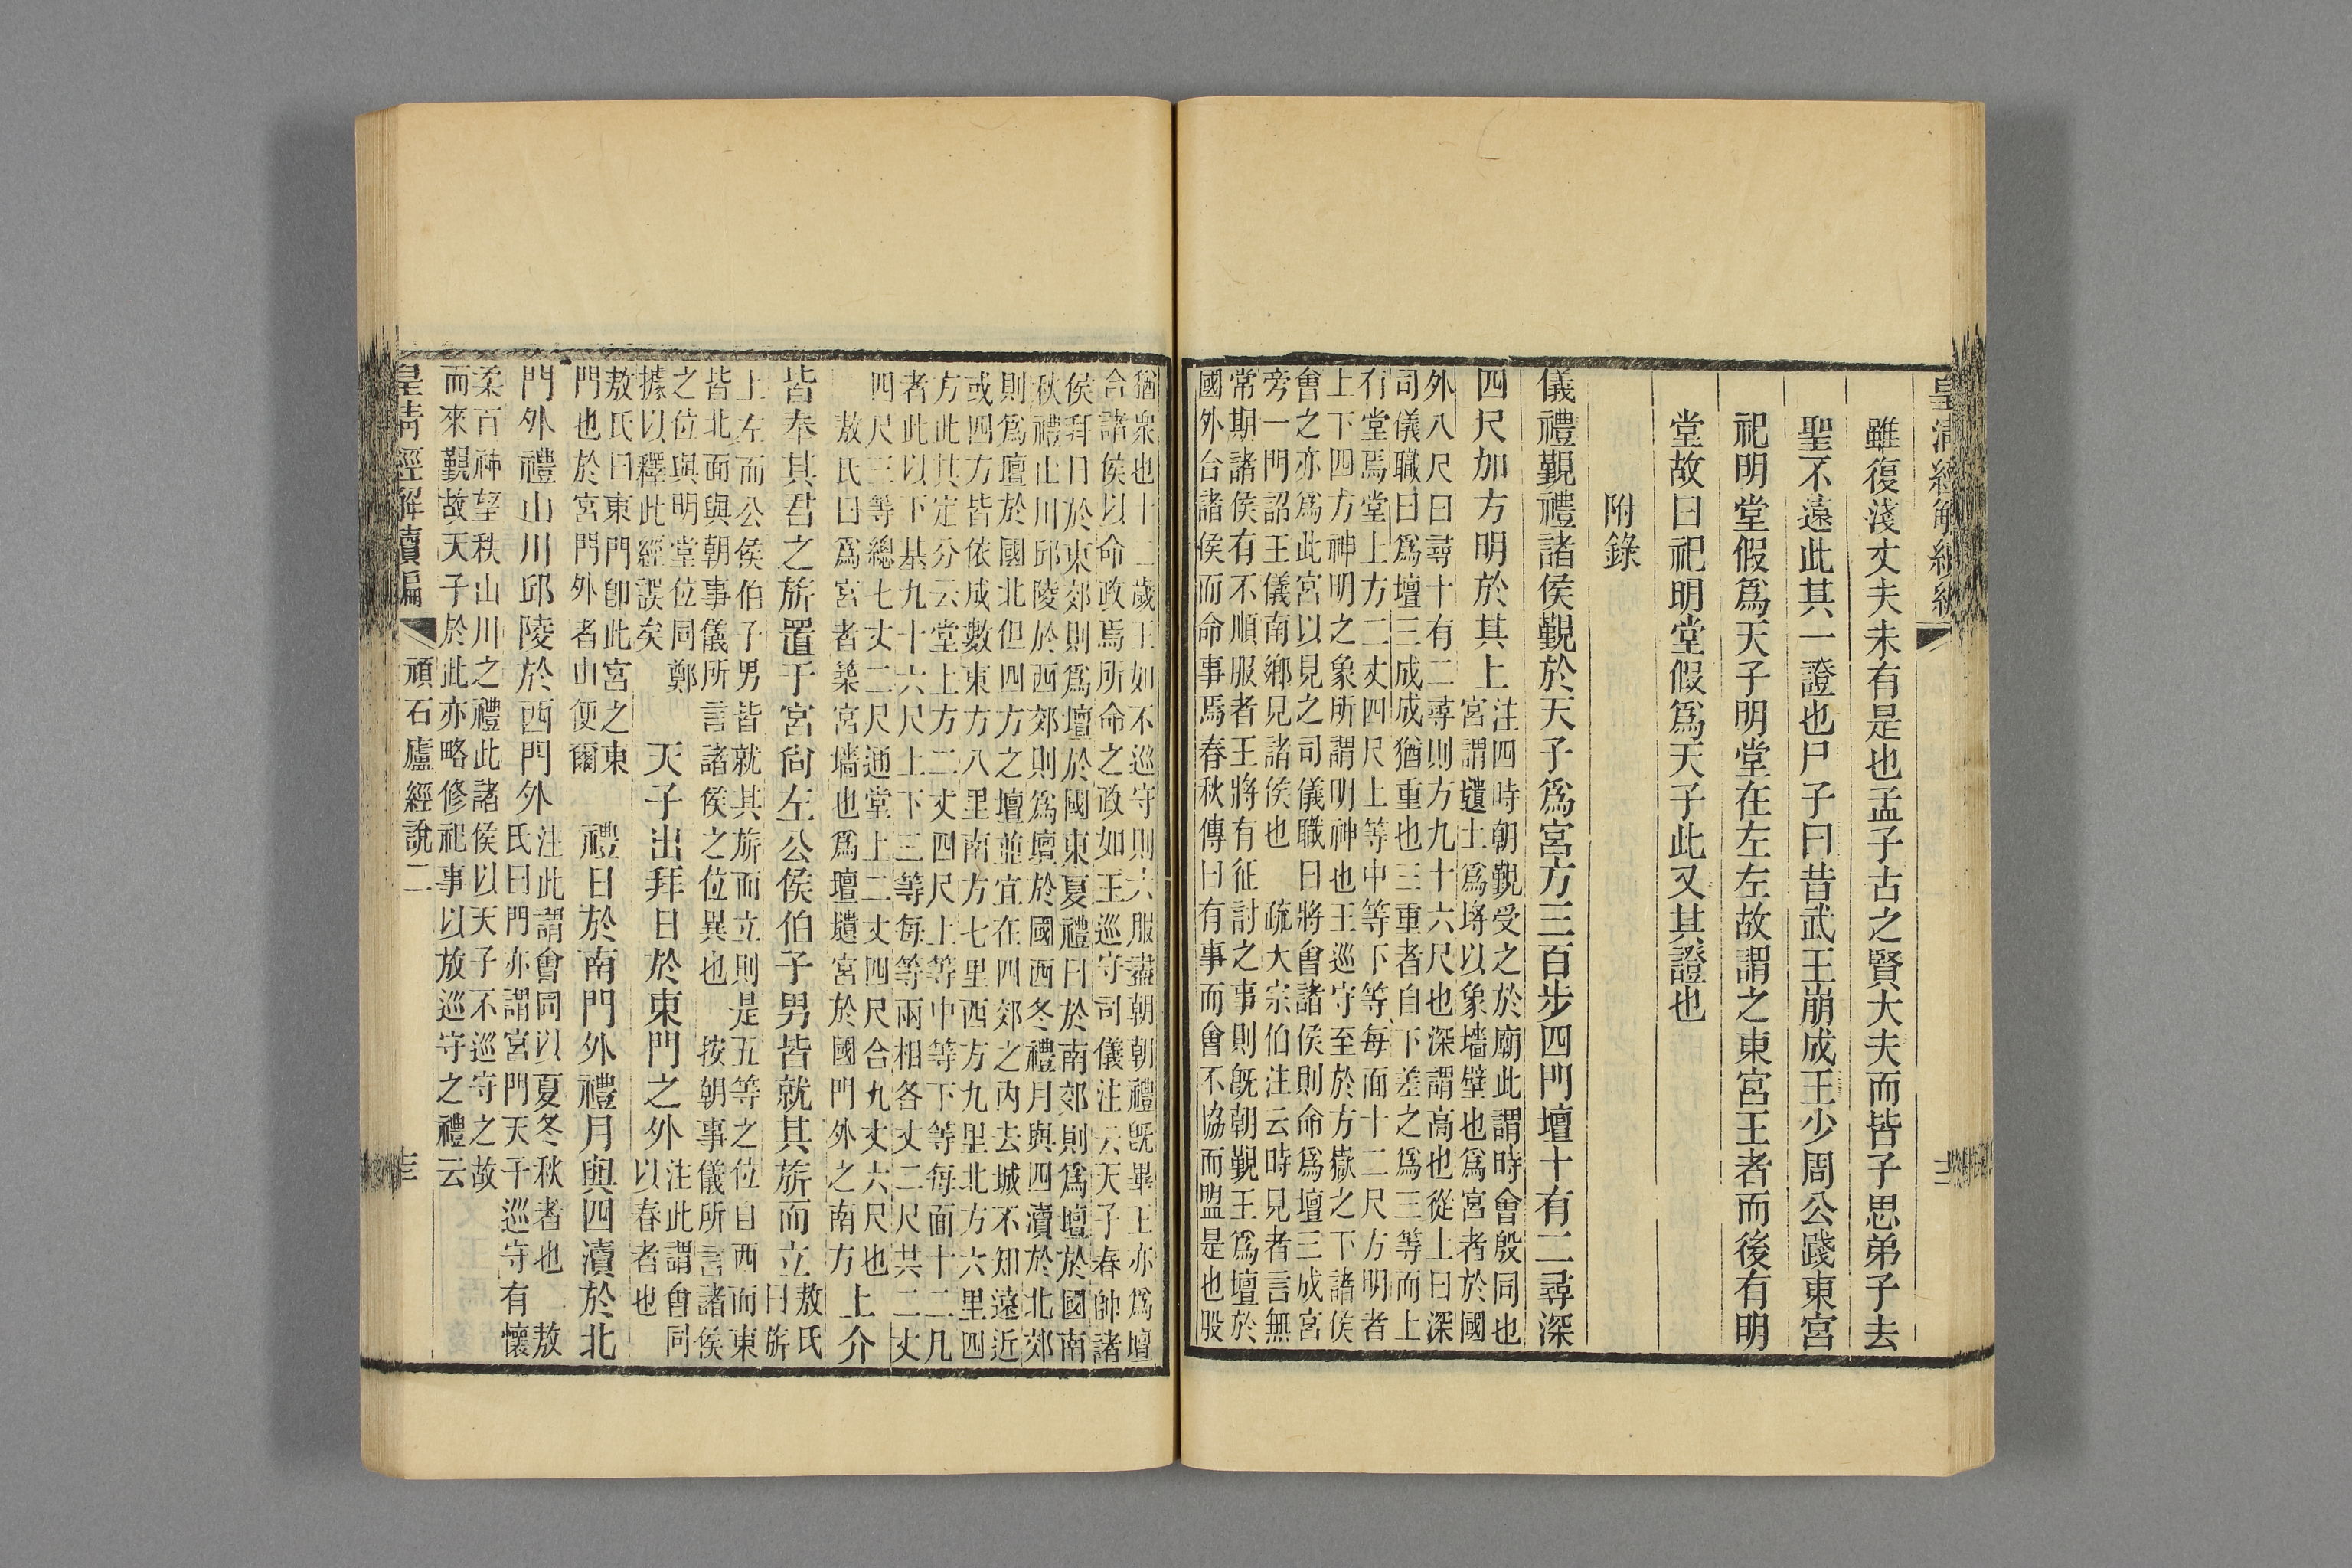 皇清經解續編
雖復淺丈夫未有是也孟子古之賢大夫而皆子思弟子去
聖不遠此其一證也尸子曰昔武王崩成王少周公踐東宮
祀明堂假爲天子明堂在左左故謂之東宮王者而後有明
堂故曰祀明堂假爲天子此又其證也
附錄
儀禮覲禮諸侯覲於天子爲宮方三百步四門壇十有二尋深
四尺加方明於其上
注四時朝覲受之於廟此謂時會殷同也
宮謂壝土爲埒以象墻壁也爲宮者於國
外八尺曰尋十有二尋則方九十六尺也深謂高也從上曰深
司儀職曰爲壇三成成猶重也三重者自下差之爲三等而上
有堂焉堂上方二丈四尺上等中等下等每面十二尺方明者
上下四方神明之象所謂明神也王巡守至於方嶽之下諸侯
會之亦爲此宮以見之司儀職曰將會諸侯則命爲壇三成宮
旁一門詔王儀南鄉見諸侯也　疏大宗伯注云時見者言無
常期諸侯有不順服者王將有征討之事則旣朝覲王爲壇於
國外合諸侯而命事焉春秋傳曰有事而會不協而盟是也殷
猶衆也十二歲王如不巡守則六服盡朝朝禮旣畢王亦爲壇
合諸侯以命政焉所命之政如王巡守司儀注云天子春帥諸
侯拜日於東郊則爲壇於國東夏禮日於南郊則爲壇於國南
秋禮山川邱陵於西郊則爲壇於國西冬禮月與四瀆於北郊
則爲壇於國北但四方之壇並宜在四郊之內去城不知遠近
或四方皆依成數東方八里南方七里西方九里北方六里四
方此其定分云堂上方二丈四尺上等中等下等每面十二凡
者此以下基九十六尺上下三等每等兩相各丈二尺共二丈
四尺三等總七丈二尺通堂上二丈四尺合九丈六尺也
敖氏曰爲宮者築宮墻也爲壇壝宮於國門外之南方
上介
皆奉其君之旂置于宮尙左公侯伯子男皆就其旂而立
敖氏
曰旂
上左而公侯伯子男皆就其旂而立則是五等之位自西而東
皆北面與朝事儀所言諸侯之位異也　按朝事儀所言諸侯
之位與明堂位同鄭
據以釋此經誤矣
天子出拜日於東門之外
注此謂會同
以春者也
敖氏曰東門卽此宮之東
門也於宮門外者由便爾
禮日於南門外禮月與四瀆於北
門外禮山川邱陵於西門外
注此謂會同以夏冬秋者也　敖
氏曰門亦謂宮門天子巡守有懷
柔百神望秩山川之禮此諸侯以天子不巡守之故
而來覲故天子於此亦略修祀事以放巡守之禮云
皇清經解續編
頑石廬經說二